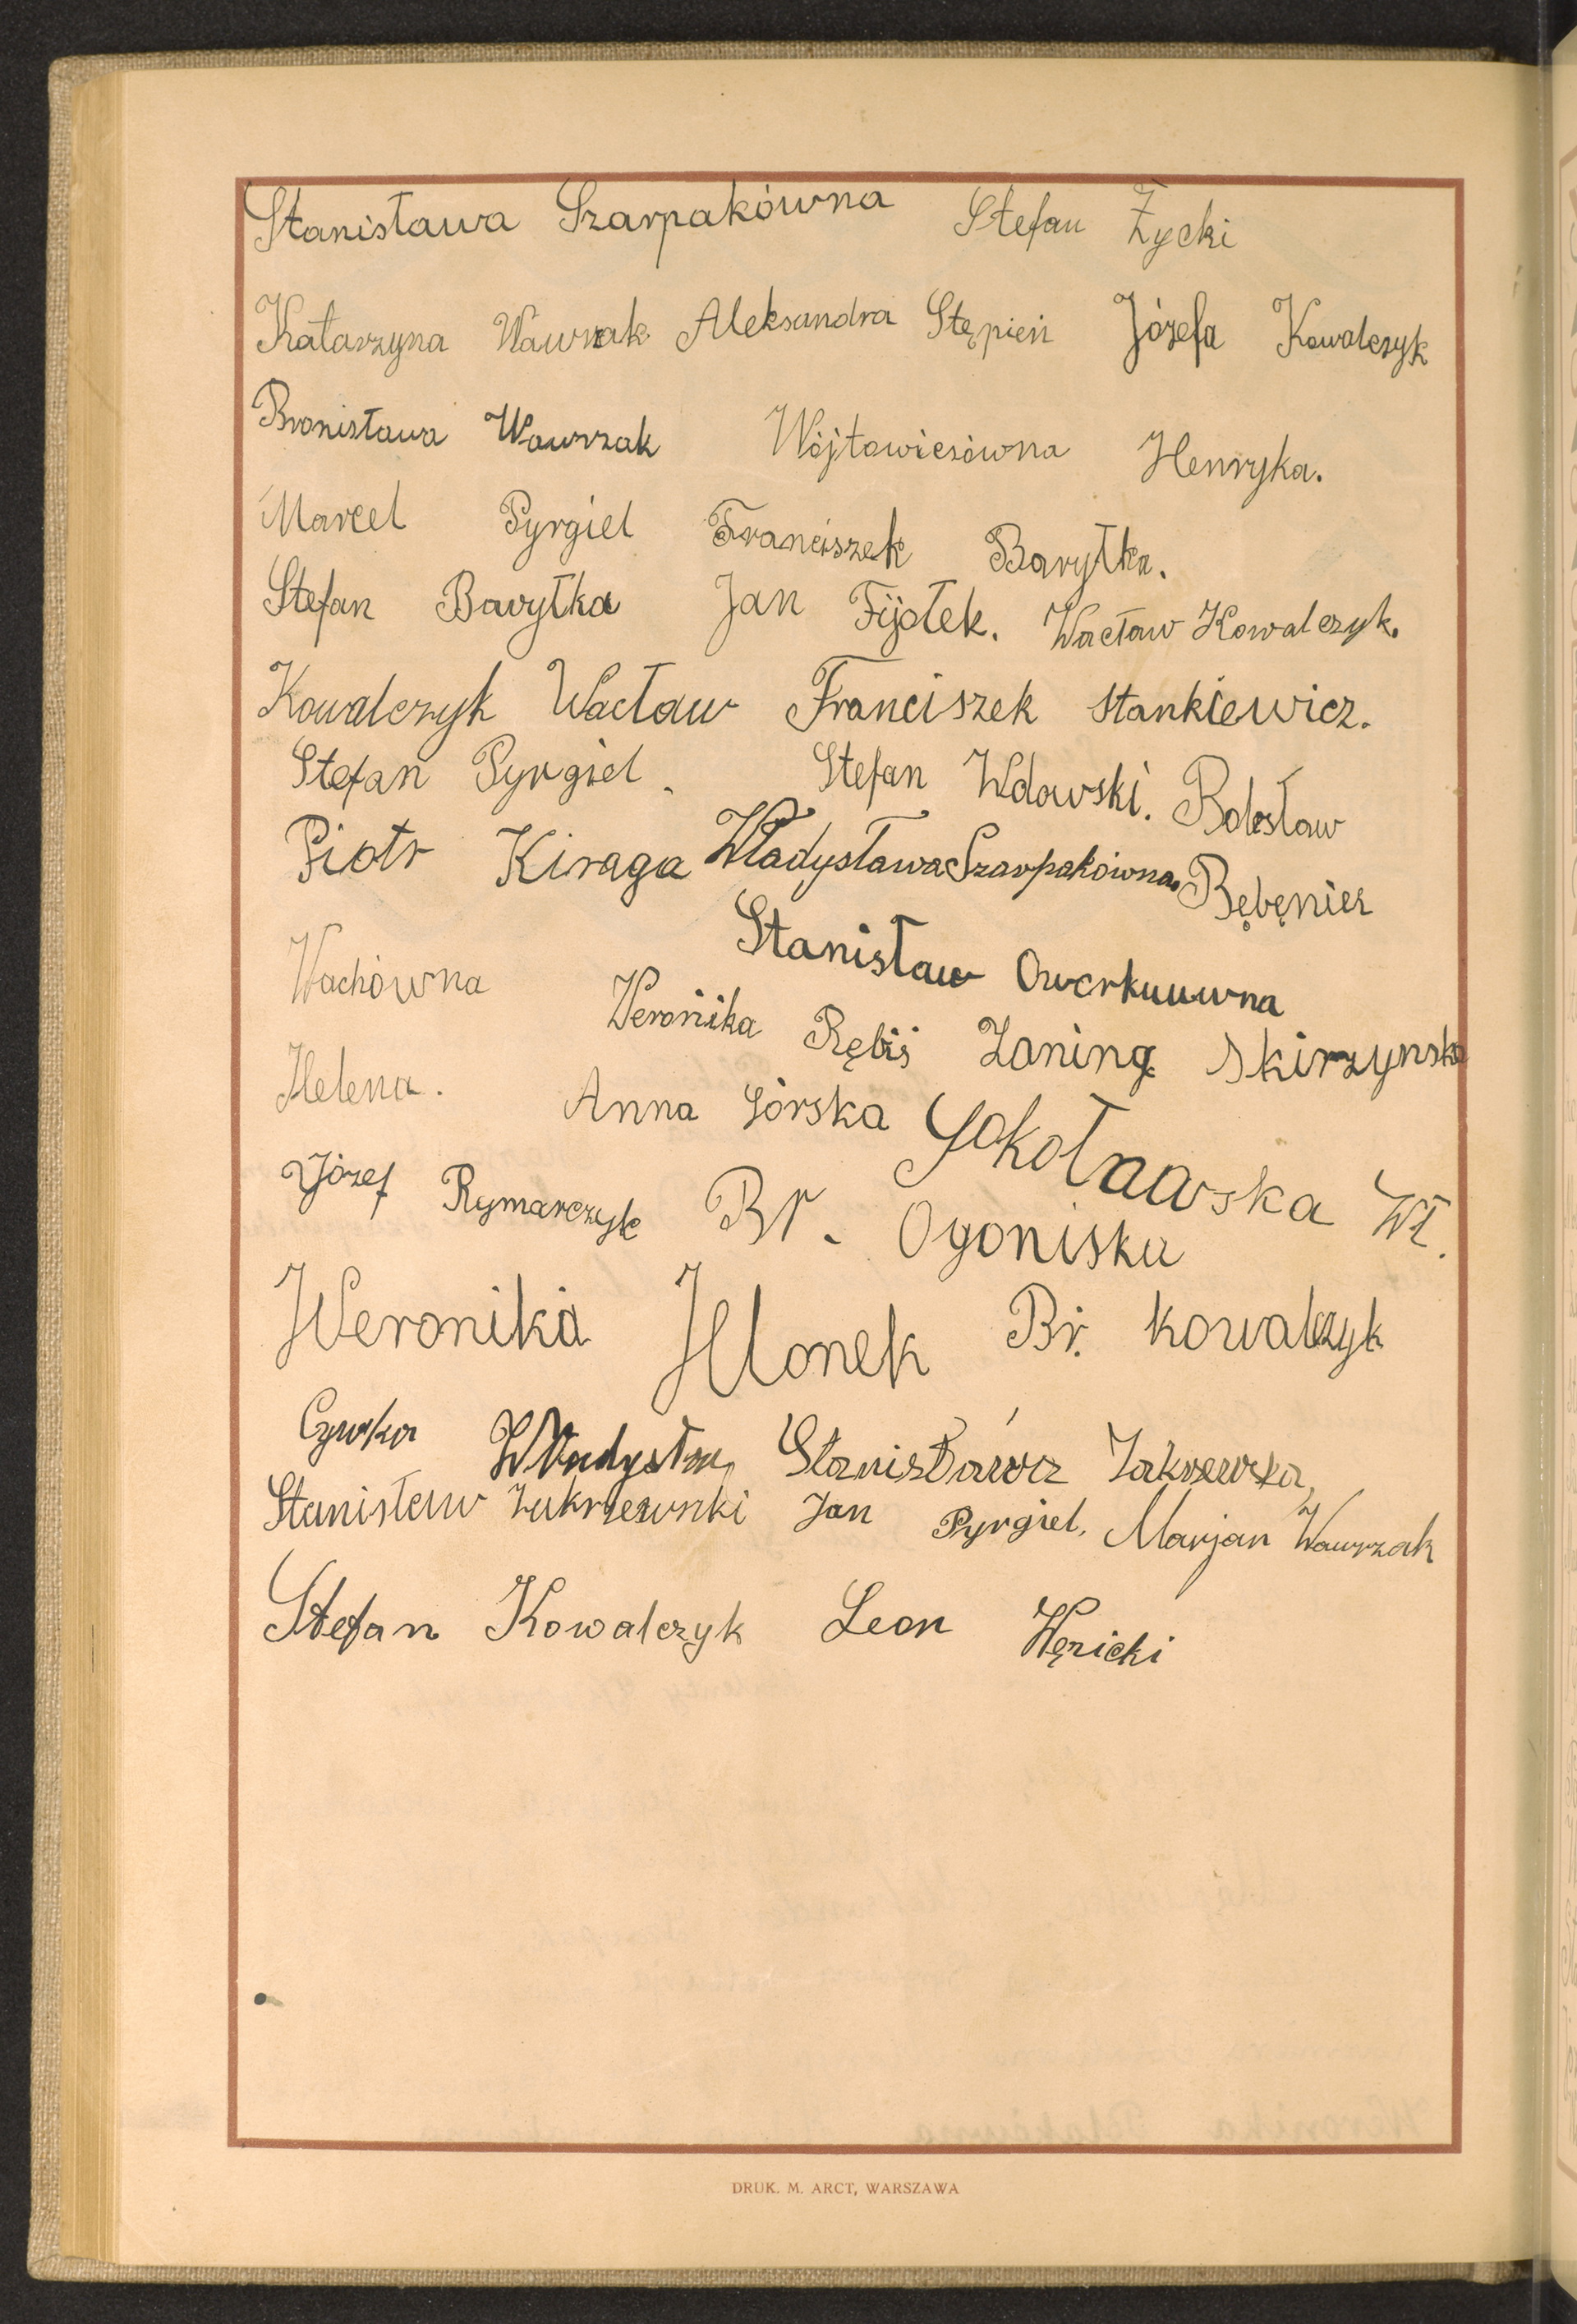 Stanisława Szarpakówna Stefan Życki
Katarzyna Wawrzak Aleksandra Stępień Józefa Kowalczyk
Bronisława Wawrzak Wójtowiczówna Henryka.
Marcel Pyrgiel Franciszek Baryłka.
Stefan Baryłka Jan Fijołek. Wacław Kowalczyk.
Kowalczyk Wacław Franciszek Stankiewicz.
Stefan Pyrgiel. Stefan Wdowski. Bolesław
Piotr Kiraga Władysława Szarpakówna. Bębenier
Stanisław
Wachówna Weronika Rębiś Zaning Skirzynska
Helena. Anna Górska Sokołaawska Wł.
Józef Rymarczyk Br. Ogoniska
Weronika Hlonek Br. Kowalczyk
Cywka Władysław Stanisława Zakrzewska,
Stanisław Zukrzewski Jan Pyrgiel. Marjan Wawrzak
Stefan Kowalczyk Leon Węzicki
DRUK. M. ARCT, WARSZAWA